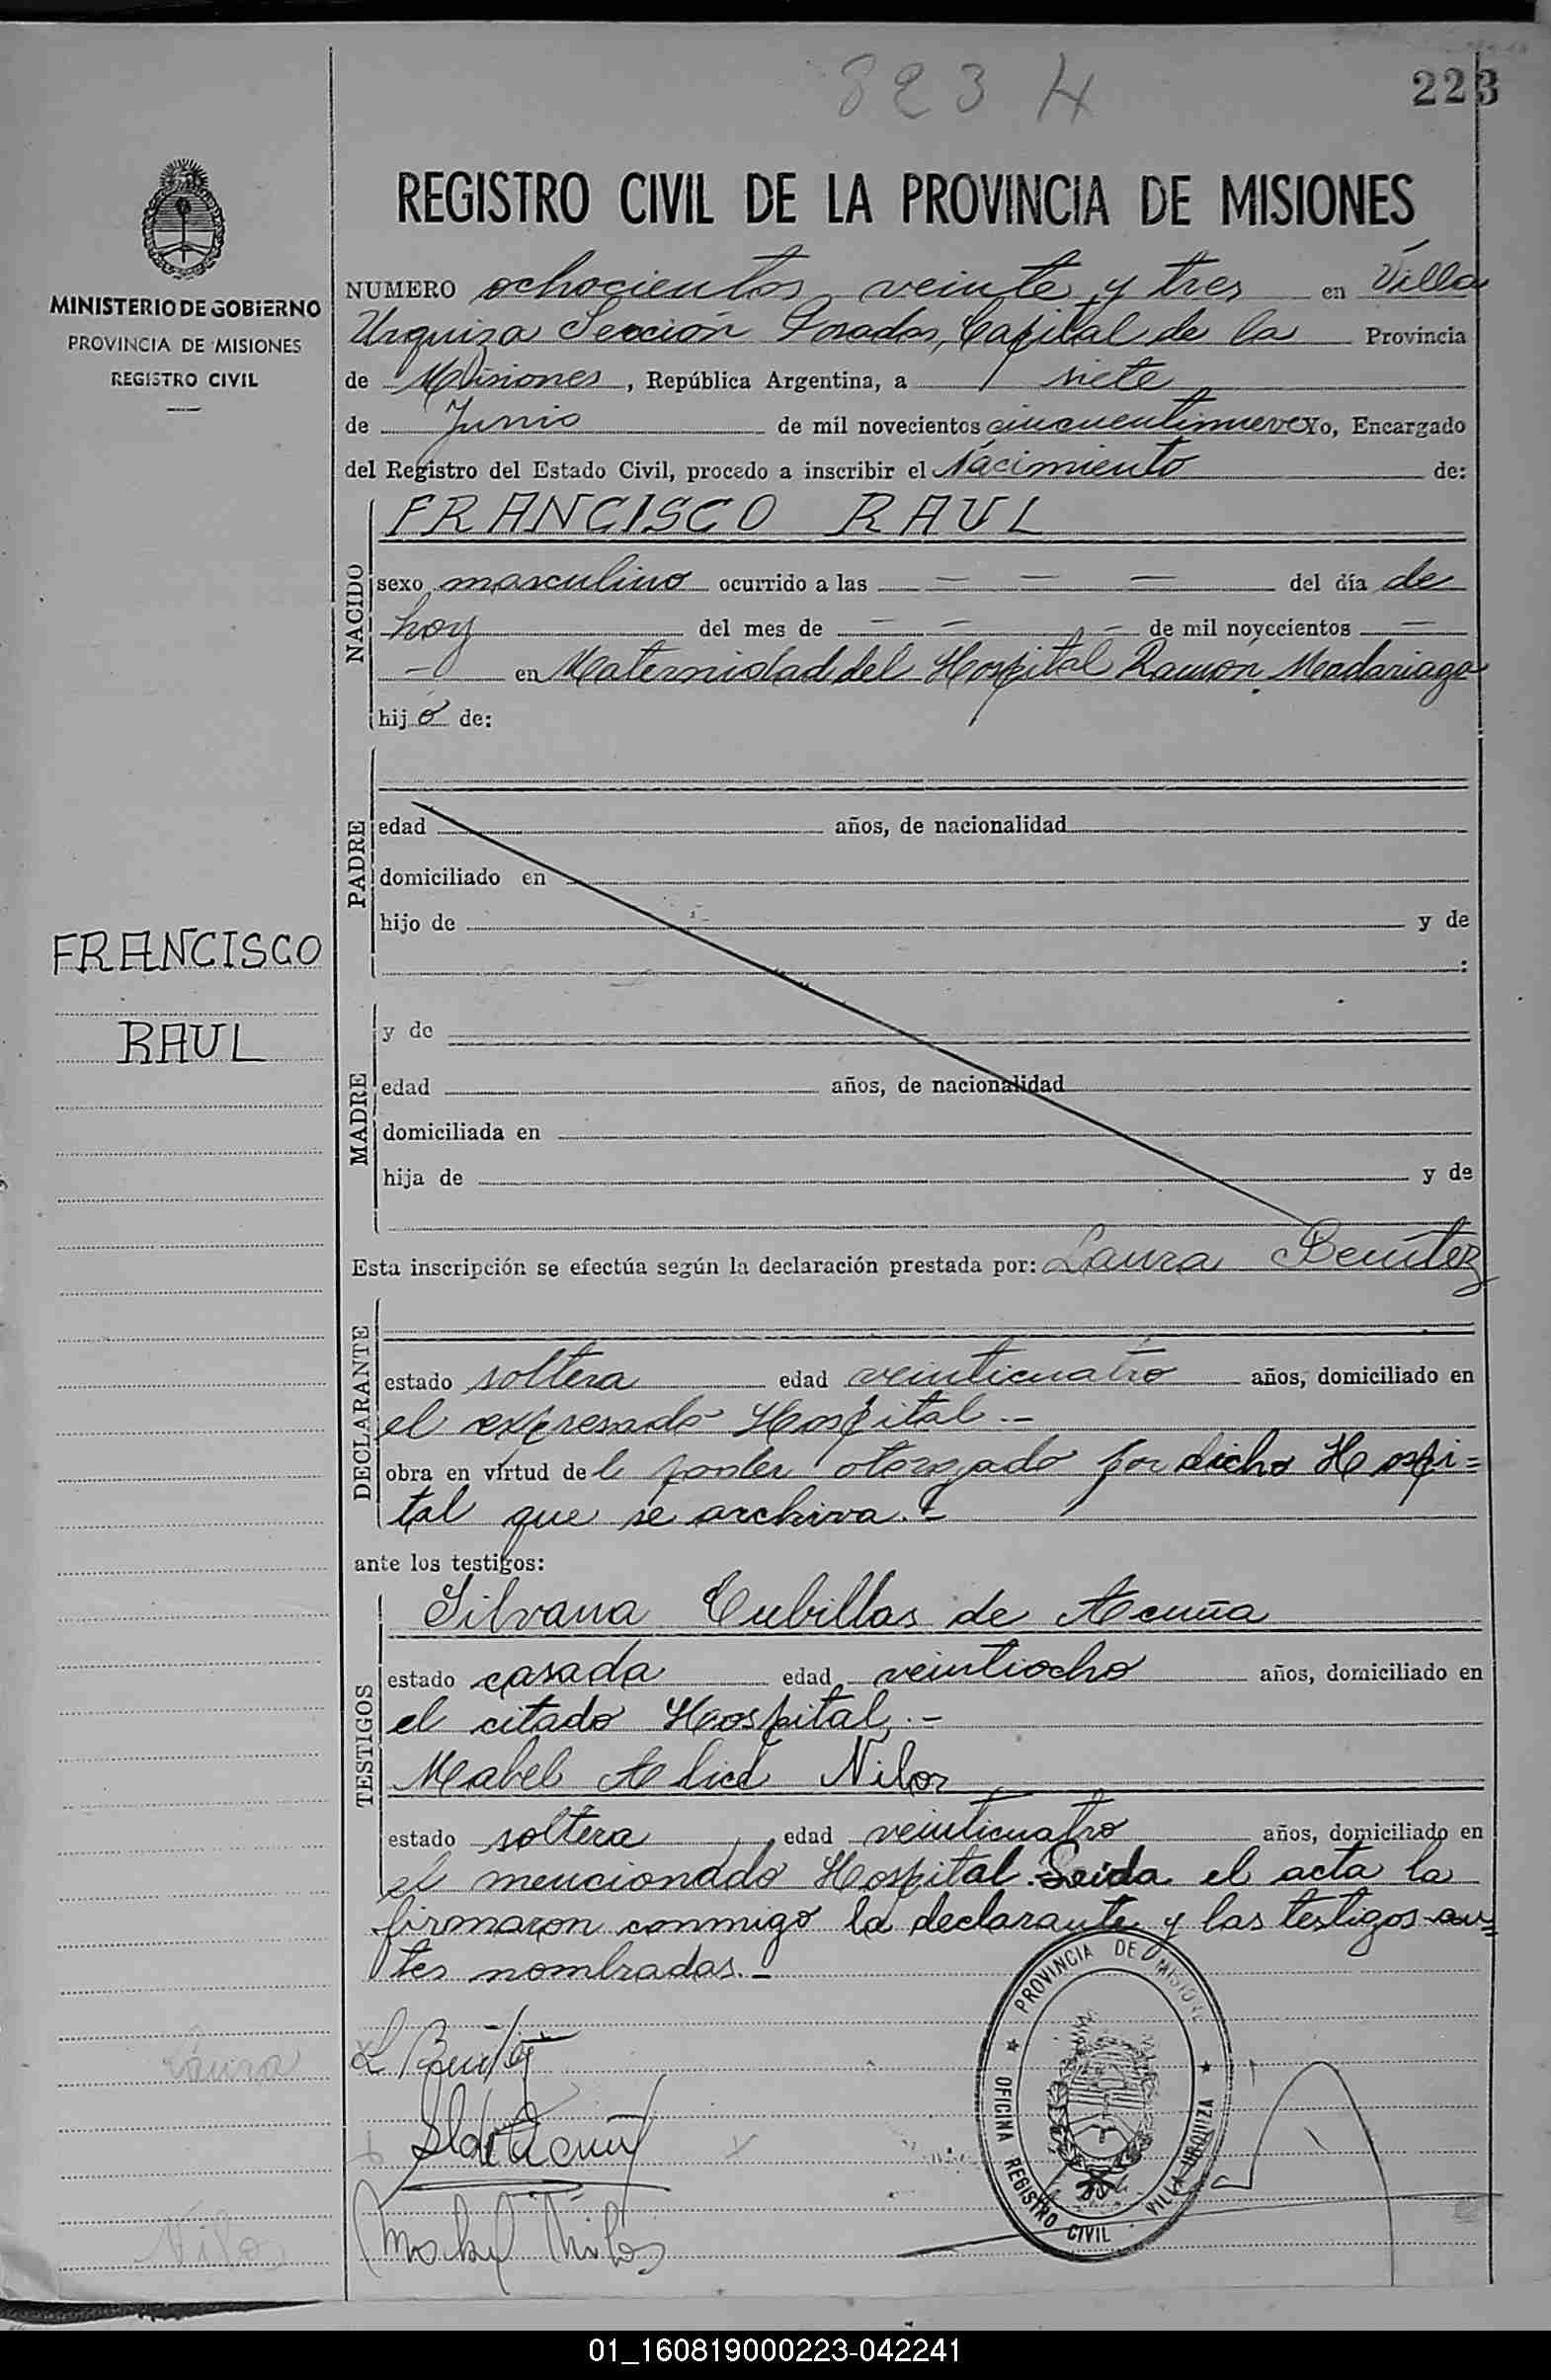 823 H
223
REGISTRO CIVIL DE LA PROVINCIA DE MISIONES
MINISTERIO DE GOBIERNO
PROVINCIA DE MISIONES
REGISTRO CIVIL
NUMERO ochocientos veinte y tres en Villa
Urquiza Sección Posadas, Capital de la Provincia
de Misiones, República Argentina, a siete
de Junio de mil novecientos cincuentinueve Yo, Encargado
del Registro del Estado Civil, procedo a inscribir el Nacimiento de:
FRANCISCO RAUL
NACIDO
sexo masculino ocurrido a las — — — del día de
hoy del mes de — — — de mil novecientos —
— en Maternidad del Hospital Ramón Madariaga
hijo de:
PADRE
edad años, de nacionalidad
domiciliado en
hijo de y de
:
FRANCISCO
RAUL
MADRE
y de
edad años, de nacionalidad
domiciliada en
hija de y de
Esta inscripción se efectúa según la declaración prestada por: Laura Benítez
DECLARANTE
estado soltera edad veinticuatro años, domiciliado en
el expresado Hospital.-
obra en virtud del poder otorgado por dicho Hospi=
tal que se archiva.-
ante los testigos:
TESTIGOS
Silvana Cubillas de Acuña
estado casada edad veintiocho años, domiciliado en
el citado Hospital.-
Mabel Alice Nilos
estado soltera, edad veinticuatro años, domiciliado en
el mencionado Hospital.-Leida el acta la
firmaron conmigo la declarante y las testigos an=
tes nombradas.-
Laura
L Benítez
SCdeAcuña
Mabel Nilos
Nilo
PROVINCIA DE MISIONES
OFICINA REGISTRO CIVIL VILLA URQUIZA
01_160819000223-042241